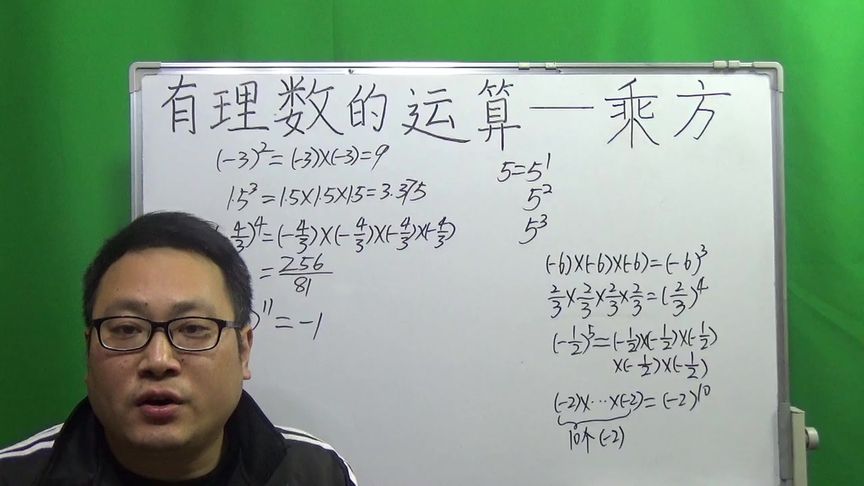 有理数的运算—乘方
(-3)²=(-3)×(-3)=9
1.5³=1.5×1.5×1.5=3.375
4/3)⁴=(-4/3)×(-4/3)×(-4/3)×(-4/3)
=256/81
)¹¹=-1
5=5¹
5²
5³
(-6)×(-6)×(-6)=(-6)³
2/3×2/3×2/3×2/3=(2/3)⁴
(-1/2)⁵=(-1/2)×(-1/2)×(-1/2)
×(-1/2)×(-1/2)
(-2)×…×(-2)=(-2)¹⁰
10个(-2)